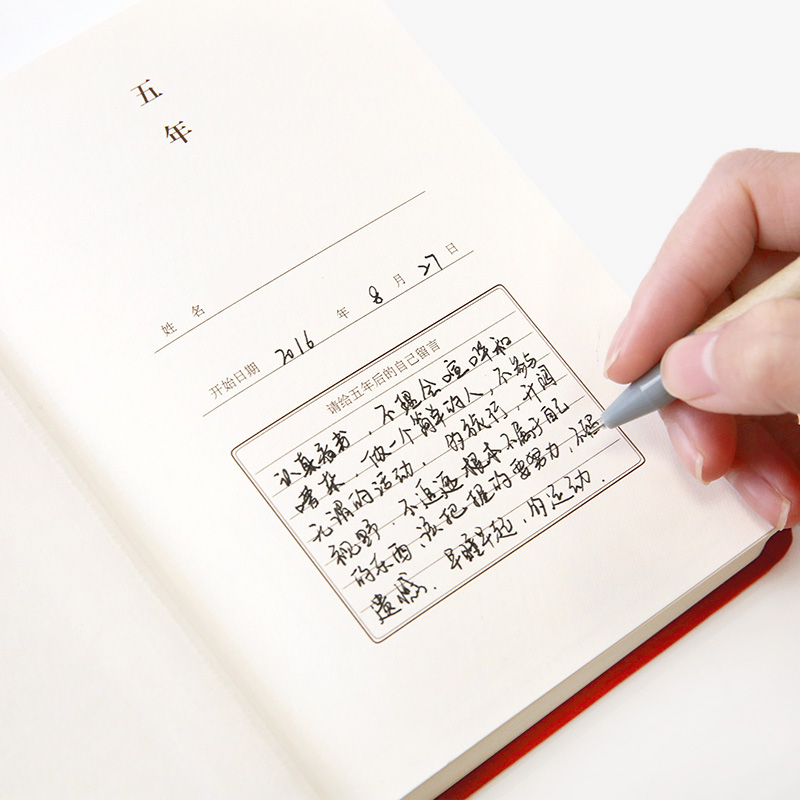 五
年
姓 名
开始日期 2016 年 8 月 27 日
请给五年后的自己留言
认真看书，不理会喧哗和
嘈杂，做一个简单的人，不参与
无谓的活动，的旅行，开阔
视野，不追逐根本不属于自己
的东西，该把握的要努力，不留
遗憾。早睡早起，的运动．